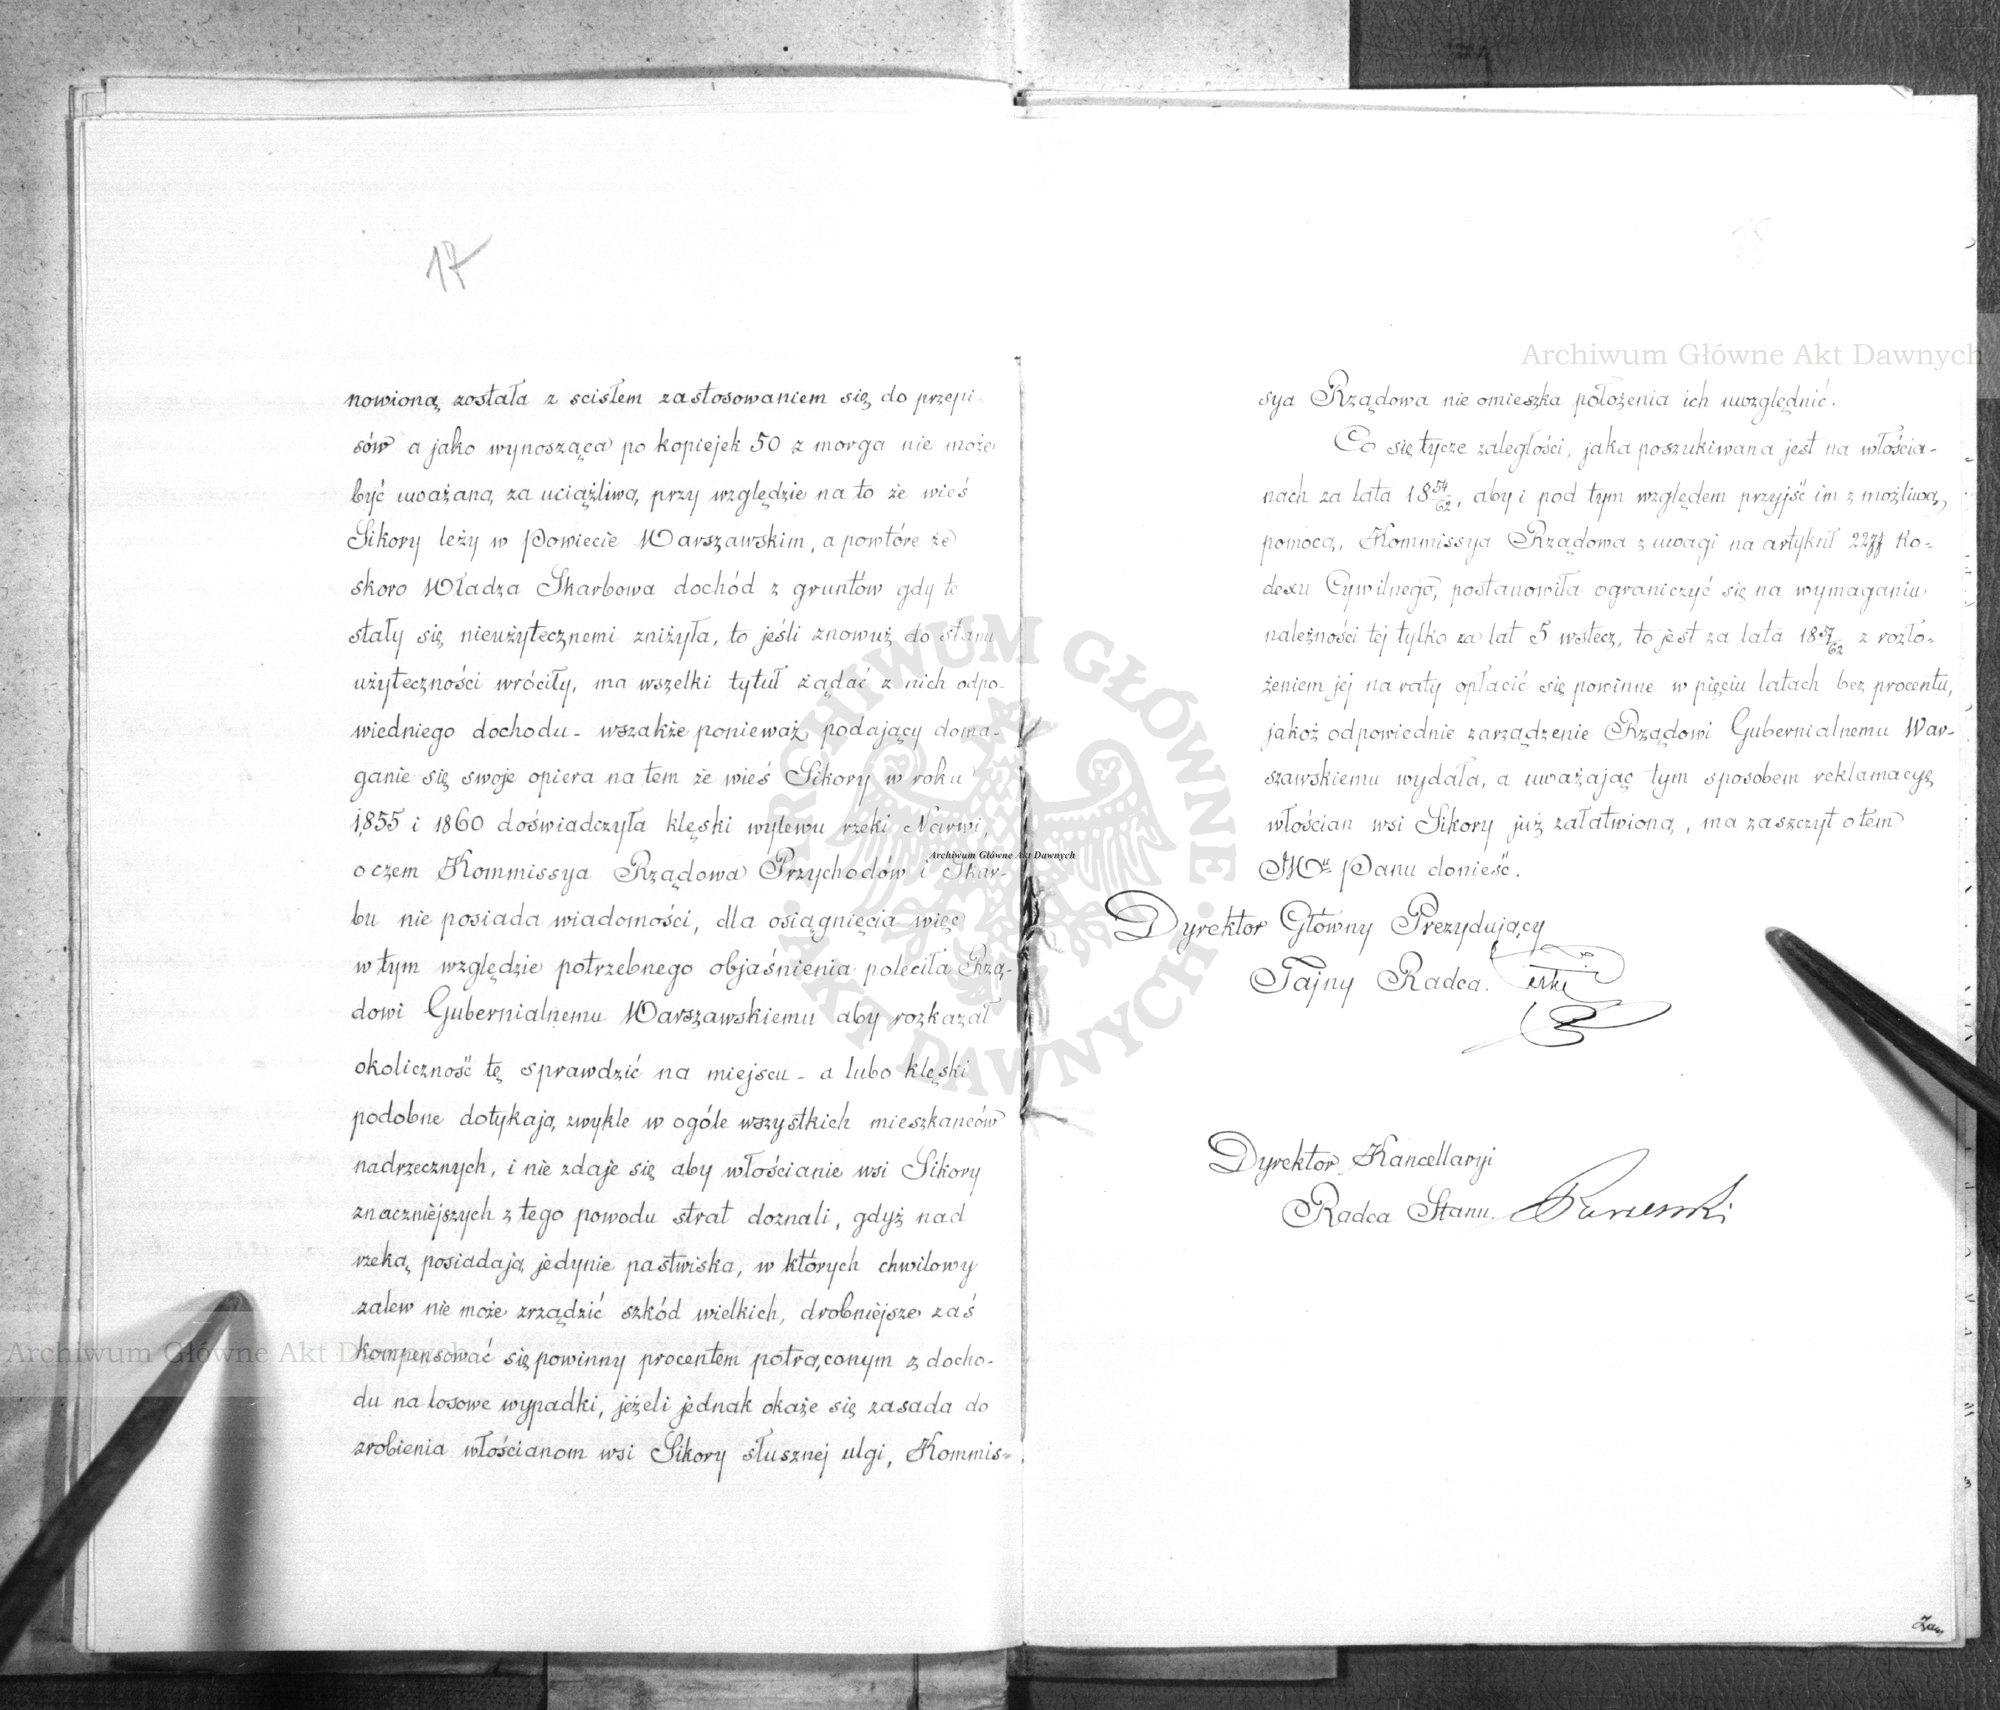 17
nowioną została z scisłem zastosowaniem się do przepi-
sów a jako wynosząca po kopiejek 50 z morga nie może
być uważaną za uciążliwą przy względzie na to że wieś
Sikory leży w Powiecie Warszawskim, a powtóre że
skoro Władza Skarbowa dochód z gruntów gdy te
stały się nieużytecznemi zniżyła, to jeśli znowuż do stanu
użyteczności wróciły, ma wszelki tytuł żądać z nich odpo-
wiedniego dochodu - wszakże ponieważ podający doma-
ganie się swoje opiera na tem że wieś Sikory w roku
1855 i 1860 doświadczyła klęski wylewu rzeki Narwi,
o czem Kommissya Rządowa Przychodów i Skar-
bu nie posiada wiadomości, dla osiągnięcia więc
w tym względzie potrzebnego objaśnienia poleciła Rzą-
dowi Gubernialnemu Warszawskiemu aby rozkazał
okoliczność tę sprawdzić na miejscu - a lubo klęski
podobne dotykają zwykle w ogóle wszystkich mieszkanców
nadrzecznych, i nie zdaje się aby włościanie wsi Sikory
znaczniejszych z tego powodu strat doznali, gdyż nad
rzeką posiadają jedynie pastwiska, w których chwilowy
zalew nie może zrządzić szkód wielkich, drobniejsze zaś
kompensować się powinny procentem potrąconym z docho-
du na losowe wypadki, jeżeli jednak okaże się zasada do
zrobienia włościanom wsi Sikory słusznej ulgi, Kommis-
sya Rządowa nie omieszka położenia ich uwzględnić.
Co się tycze zaległości, jaka poszukiwana jest na włościa-
nach za lata 18 54/62, aby i pod tym względem przyjść im z możliwą
pomocą, Kommissya Rządowa z uwagi na artykuł 2277 Ko-
dexu Cywilnego, postanowiła ograniczyć się na wymaganiu
należności tej tylko za lat 5 wstecz, to jest za lata 18 57/62 z rozło-
żeniem jej na raty opłacić się powinne w pięciu latach bez procentu,
jakoż odpowiednie zarządzenie Rządowi Gubernialnemu War-
szawskiemu wydała, a uważając tym sposobem reklamacyę
włościan wsi Sikory już załatwioną, ma zaszczyt o tem
JWu Panu donieść.
Dyrektor Główny Prezydujący
Tajny Radca.
Dyrektor Kancellaryi
Radca Stanu.
Archiwum Główne Akt Dawnych
Archiwum Główne Akt Dawnych
Archiwum Główne Akt Dawnych
ARCHIWUM GŁÓWNE AKT DAWNYCH